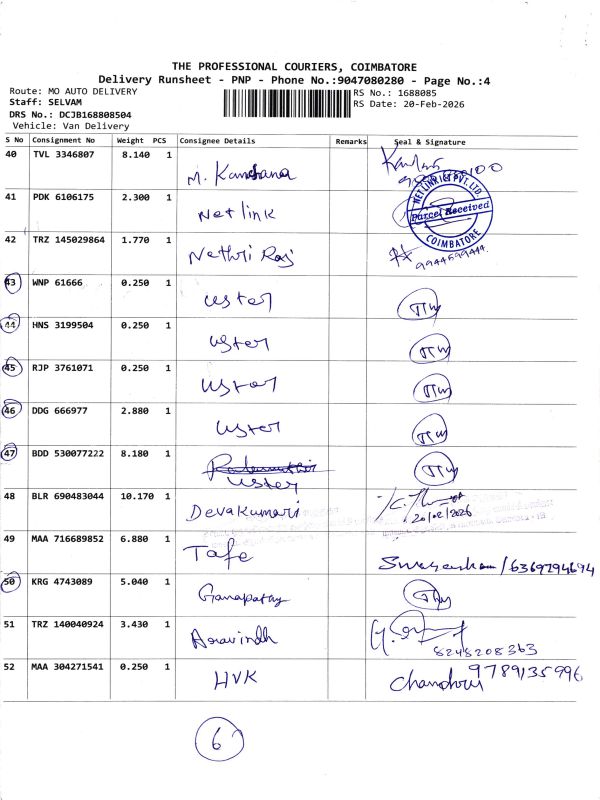 THE PROFESSIONAL COURIERS, COIMBATORE
Delivery Runsheet - PNP - Phone No.:9047080280 - Page No.:4
Route: MO AUTO DELIVERY
RS No.: 1688085
Staff: SELVAM
RS Date: 20-Feb-2026
DRS No.: DCJB168808504
Vehicle: Van Delivery
S No Consignment No Weight PCS Consignee Details Remarks Seal & Signature
40 TVL 3346807 8.140 1 M. Kanchana
41 PDK 6106175 2.300 1 Netlink
NETLINK PVT. LTD.
Parcel Received
COIMBATORE
42 TRZ 145029864 1.770 1 Nethri Raj
43 WNP 61666 0.250 1 Uster
44 HNS 3199504 0.250 1 Uster
45 RJP 3761071 0.250 1 Uster
46 DDG 666977 2.880 1 Uster
47 BDD 530077222 8.180 1 Uster
48 BLR 690483044 10.170 1 Devakumari 20/02/2026
49 MAA 716689852 6.880 1 Tafe 6369794694
50 KRG 4743089 5.040 1 Ganapathy
51 TRZ 140040924 3.430 1 Aravindh 8248208363
52 MAA 304271541 0.250 1 HVK 9789135996
6